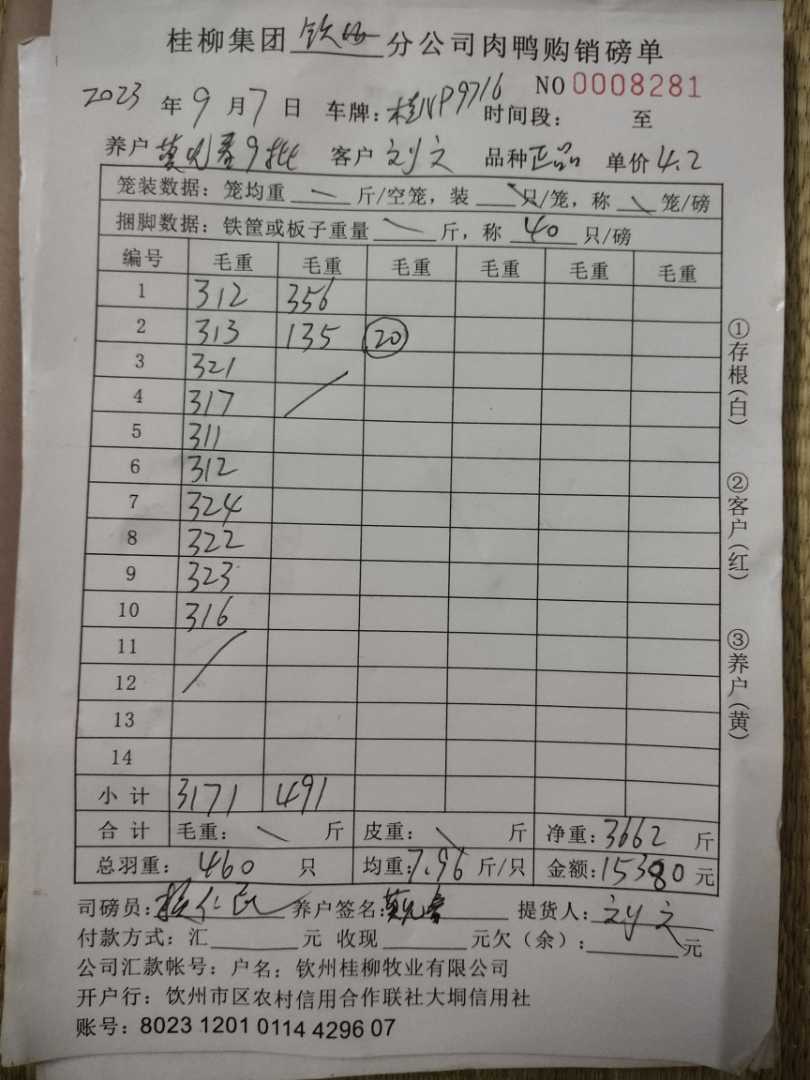 桂柳集团 钦州 分公司肉鸭购销磅单
NO 0008281
2023 年 9 月 7 日 车牌: 桂NP9716 时间段: 至
养户 9批 客户 刘文 品种 正品 单价 4.2
笼装数据: 笼均重 \ 斤/空笼, 装 \ 只/笼, 称 \ 笼/磅
捆脚数据: 铁筐或板子重量 \ 斤, 称 40 只/磅
编号 毛重 毛重 毛重 毛重 毛重 毛重
1 312 356
2 313 135 20
3 321
4 317 /
5 311
6 312
7 324
8 322
9 323
10 316
11 /
12
13
14
小计 3171 491
合计 毛重: \ 斤 皮重: \ 斤 净重: 3662 斤
总羽重: 460 只 均重: 7.96 斤/只 金额: 15380 元
司磅员: 养户签名: 提货人: 刘文
付款方式: 汇 元 收现 元欠(余): 元
公司汇款帐号: 户名: 钦州桂柳牧业有限公司
开户行: 钦州市区农村信用合作联社大垌信用社
账号: 8023 1201 0114 4296 07
①存根(白)
②客户(红)
③养户(黄)